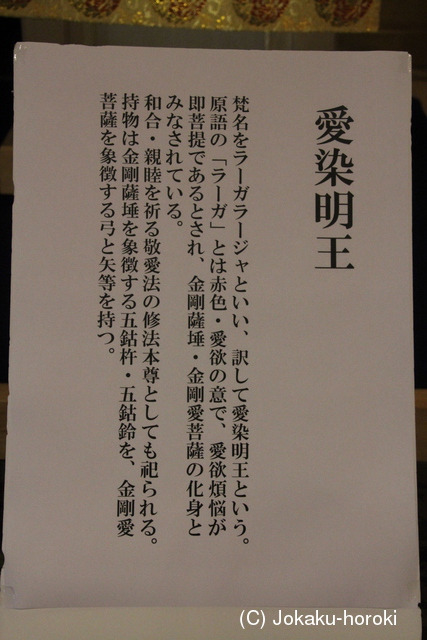 愛染明王
梵名をラーガラージャといい、訳して愛染明王という。
原語の「ラーガ」とは赤色・愛欲の意で、愛欲煩悩が
即菩提であるとされ、金剛薩埵・金剛愛菩薩の化身と
みなされている。
和合・親睦を祈る敬愛法の修法本尊としても祀られる。
持物は金剛薩埵を象徴する五鈷杵・五鈷鈴を、金剛愛
菩薩を象徴する弓と矢等を持つ。
(C) Jokaku-horoki